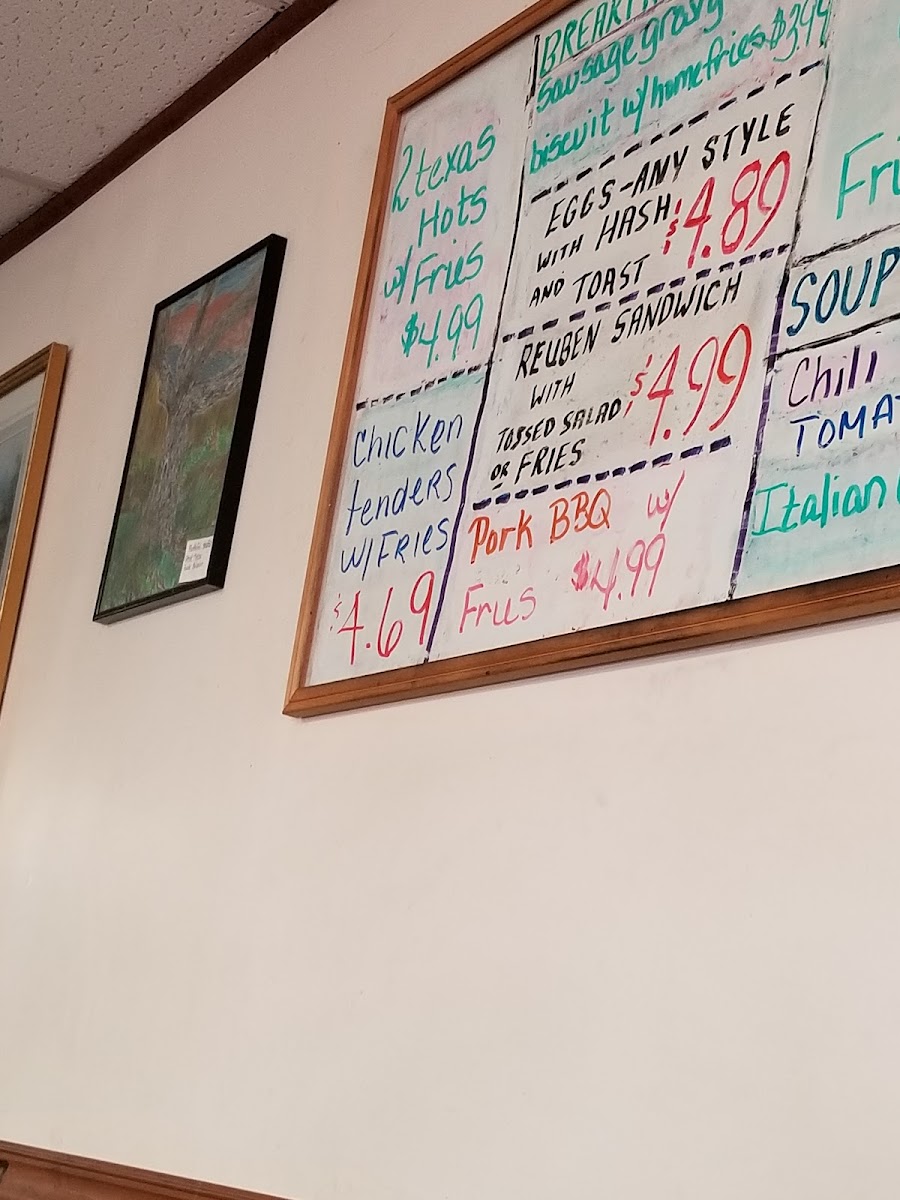 2 texas
Hots
w/ Fries
$4.99
Chicken
tenders
w/ FRIES
$4.69
sausage gravy
biscuit w/ homefries $3.99
EGGS-ANY STYLE
WITH HASH
AND TOAST
$4.89
REUBEN SANDWICH
WITH
TOSSED SALAD
OR FRIES
$4.99
Pork BBQ w/
Fries $4.99
SOUP
Chili
Italian